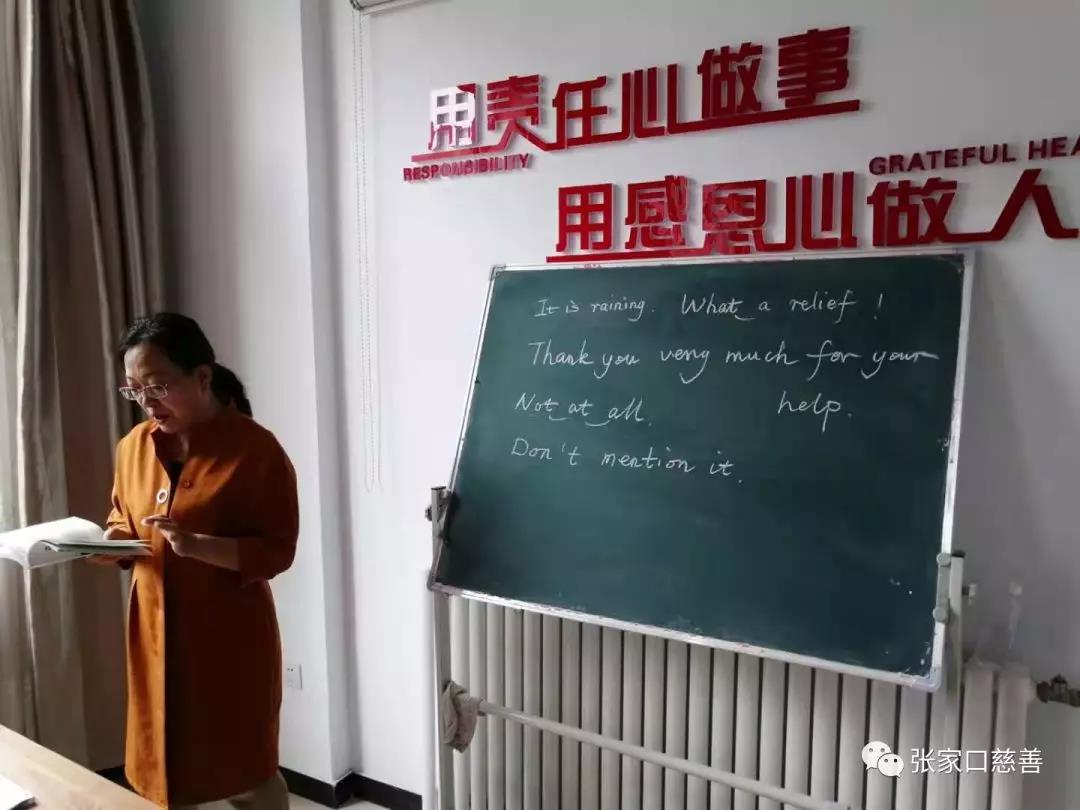 用责任心做事
RESPONSIBILITY
GRATEFUL HEA
用感恩心做人
It is raining. What a relief!
Thank you very much for your
help.
Not at all.
Don't mention it.
张家口慈善